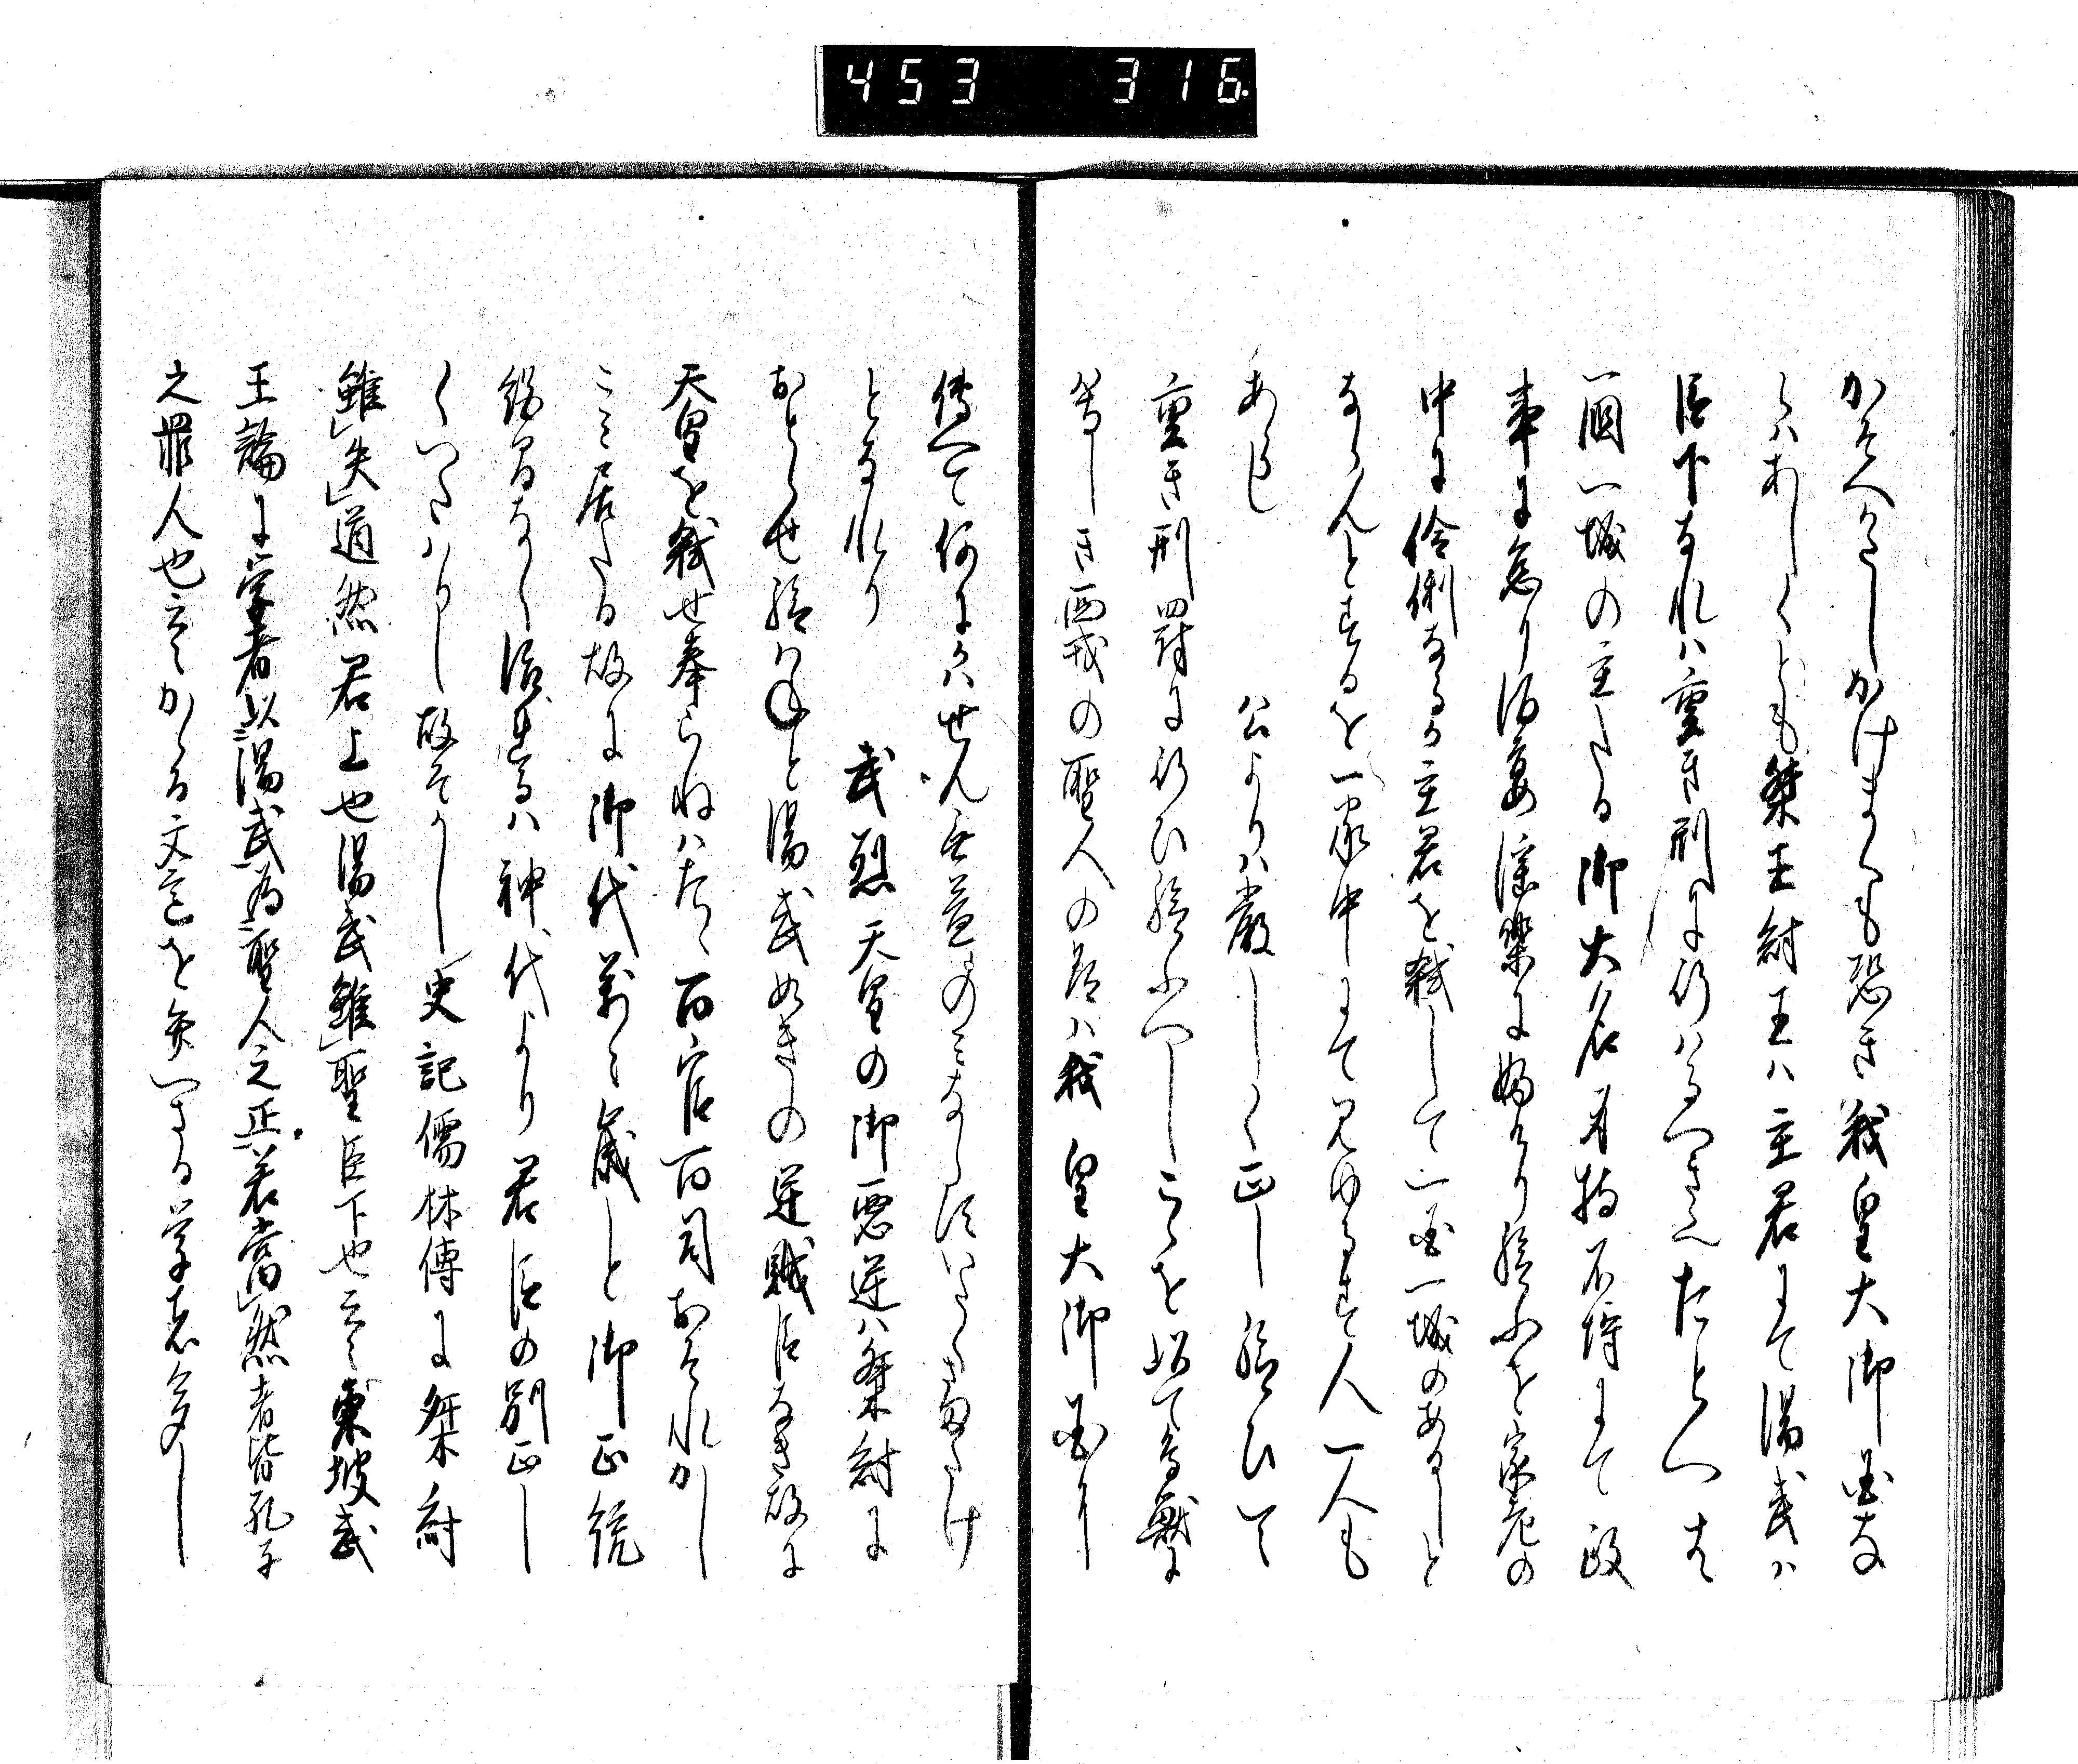 453 316
かそへかたしかけまくも恐き我皇大御国な
らハあしくとも桀王紂王ハ主君にて湯武ハ
臣下なれハ重き刑に行はるへきをたとへは
一国一城の主たる御大名身持不埒にて政
事に怠り酒宴淫楽に婦けり給ふを家老の
中に伶俐なるか主君を弑して一国一城のあるしと
ならんとするを一家中にて見ゆるす人一人も
あらし 公よりハ厳しく正し給ひて
重き刑罰に行ひ給ふへしこゝを以て鳥獣に
等しき西戎の聖人の道ハ我皇大御国に
傳へて何にかハせん無益のミならすいたくさまたけ
となれり 武烈天皇の御悪逆ハ桀紂に
おとらせ給はねと湯武如きの逆賊臣なき故に
天皇を弑せ奉らねハたゝ百官百司おそれかし
こミ居たる故に御代万々歳と御正統
絶間なく治れるハ神代より君臣の別正し
くいたハりし故そかし史記儒林傳に桀紂
雖失道然君上也湯武雖聖臣下也云々東坡武
王論に学者以湯武為聖人之正若當然者皆孔子
之罪人也云々かゝる文意を弁へさる学者多し